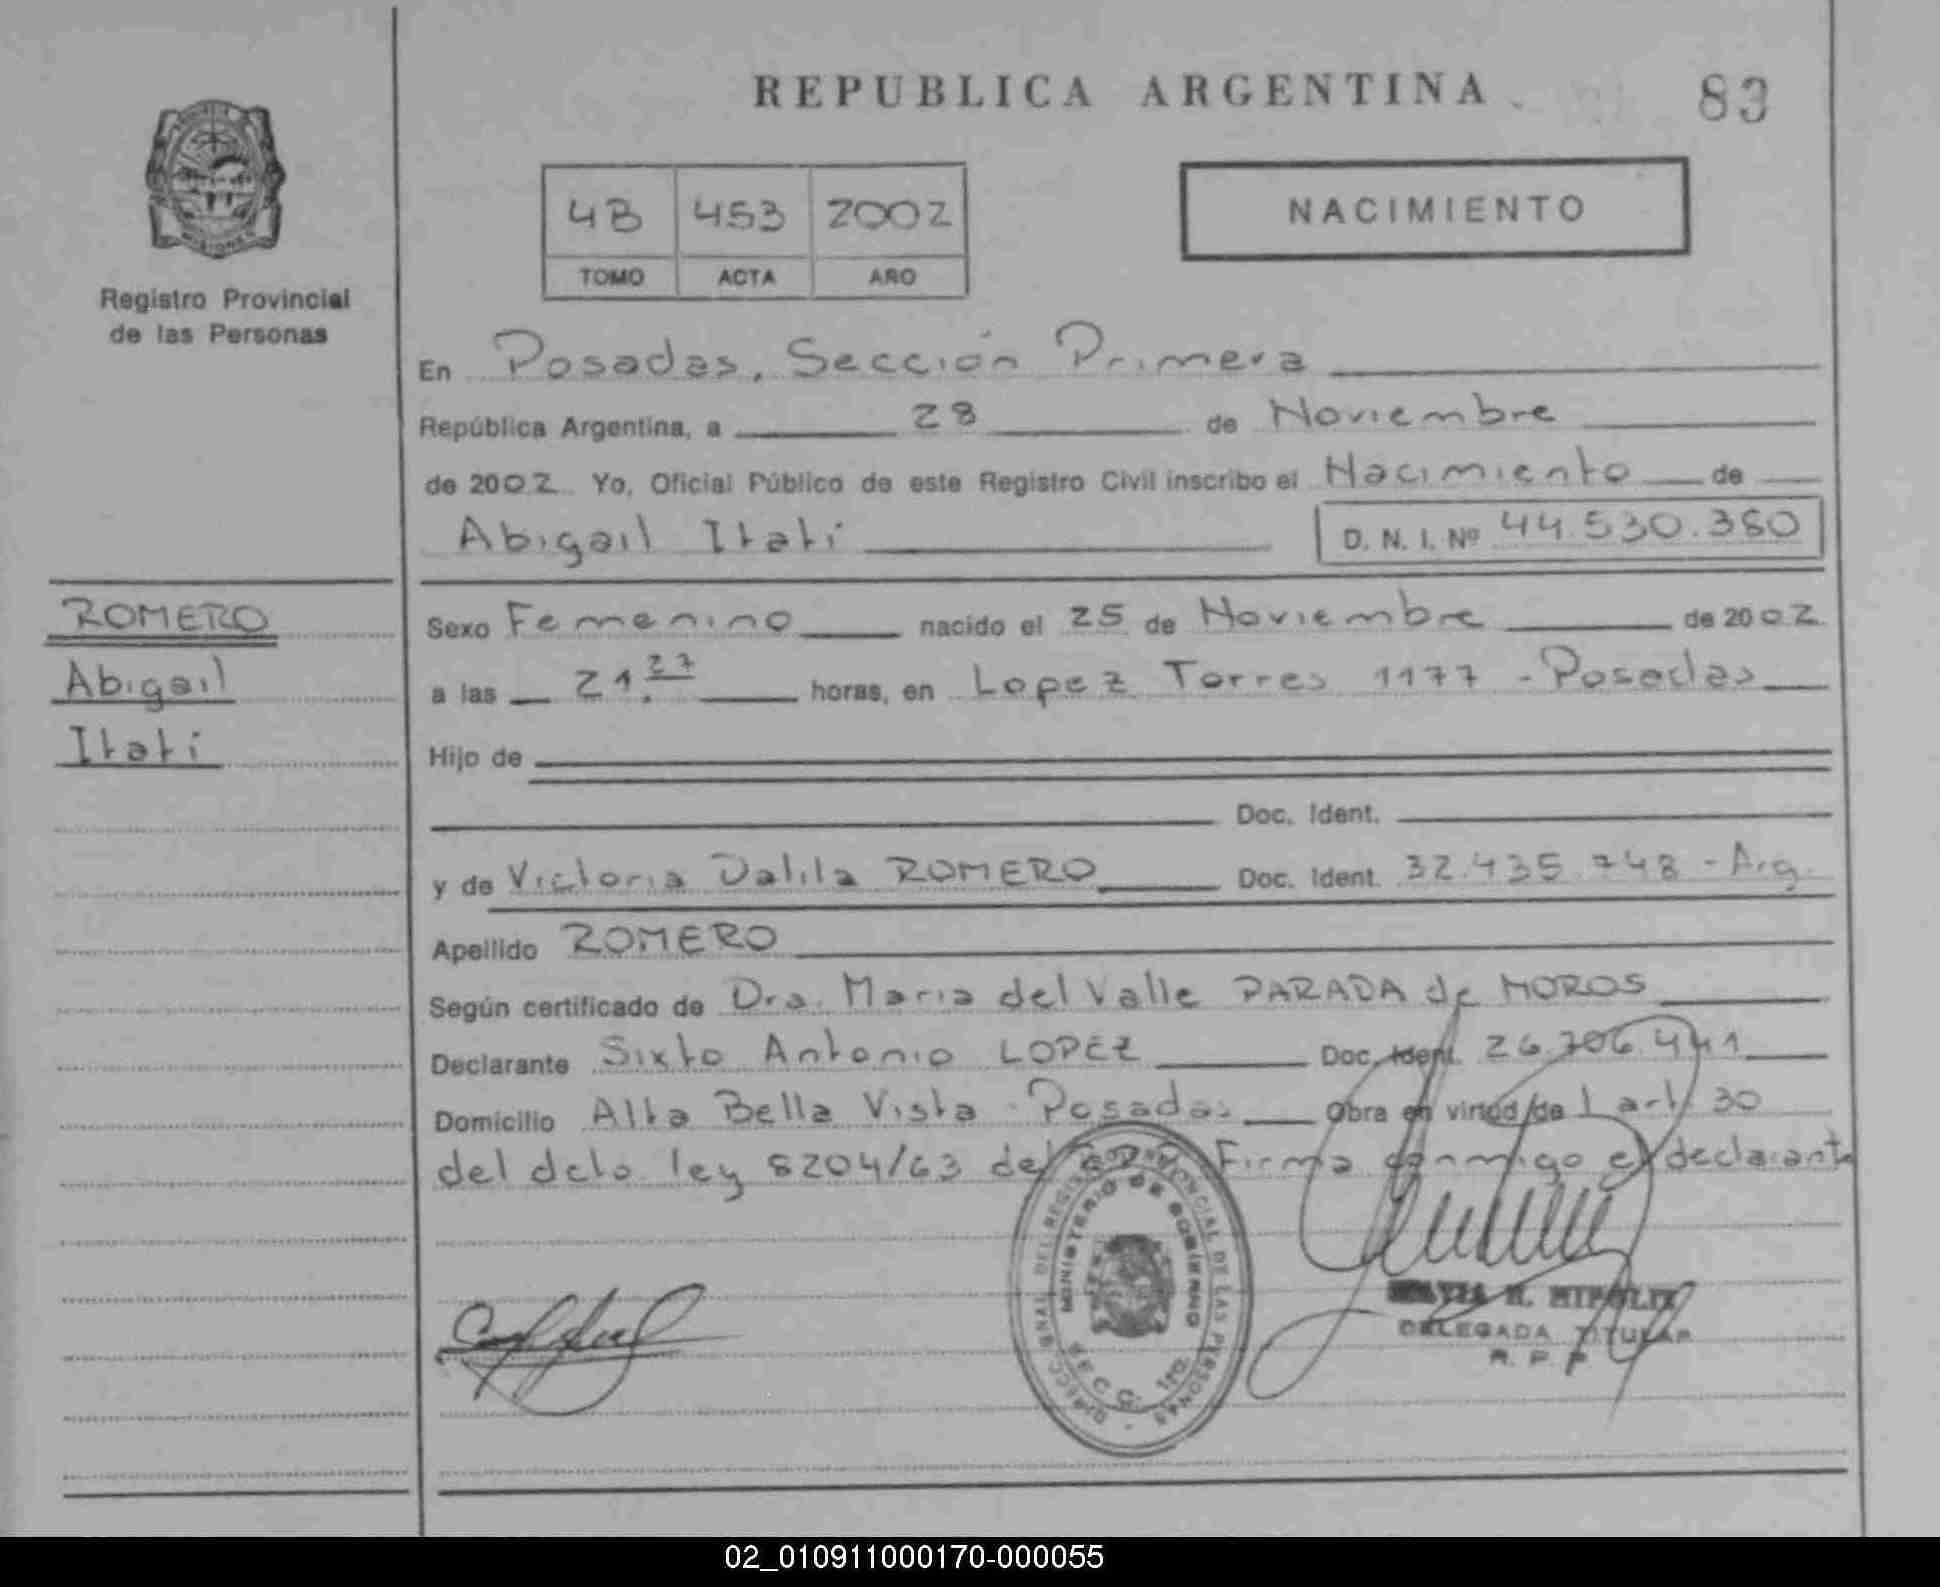 REPUBLICA ARGENTINA
83
4B 453 2002
TOMO ACTA AÑO
NACIMIENTO
Registro Provincial
de las Personas
En Posadas, Sección Primera
República Argentina, a 28 de Noviembre
de 2002 Yo, Oficial Público de este Registro Civil inscribo el Nacimiento de
Abigail Itatí
D. N. I. Nº 44.530.380
ROMERO
Abigail
Itatí
Sexo Femenino nacido el 25 de Noviembre de 2002
a las 21.27 horas, en Lopez Torres 1177 - Posadas
Hijo de
Doc. Ident.
y de Victoria Dalila ROMERO Doc. Ident. 32.435.748 - Arg.
Apellido ROMERO
Según certificado de Dra. Maria del Valle PARADA de MOROS
Declarante Sixto Antonio LOPEZ Doc. Ident. 26.706.441
Domicilio Alta Bella Vista - Posadas Obra en virtud de l art 30
del dcto. ley 8204/63 del Firma conmigo el declarante
MINISTERIO DE GOBIERNO
DELEGADA TITULAR
R. P. P.
02_010911000170-000055